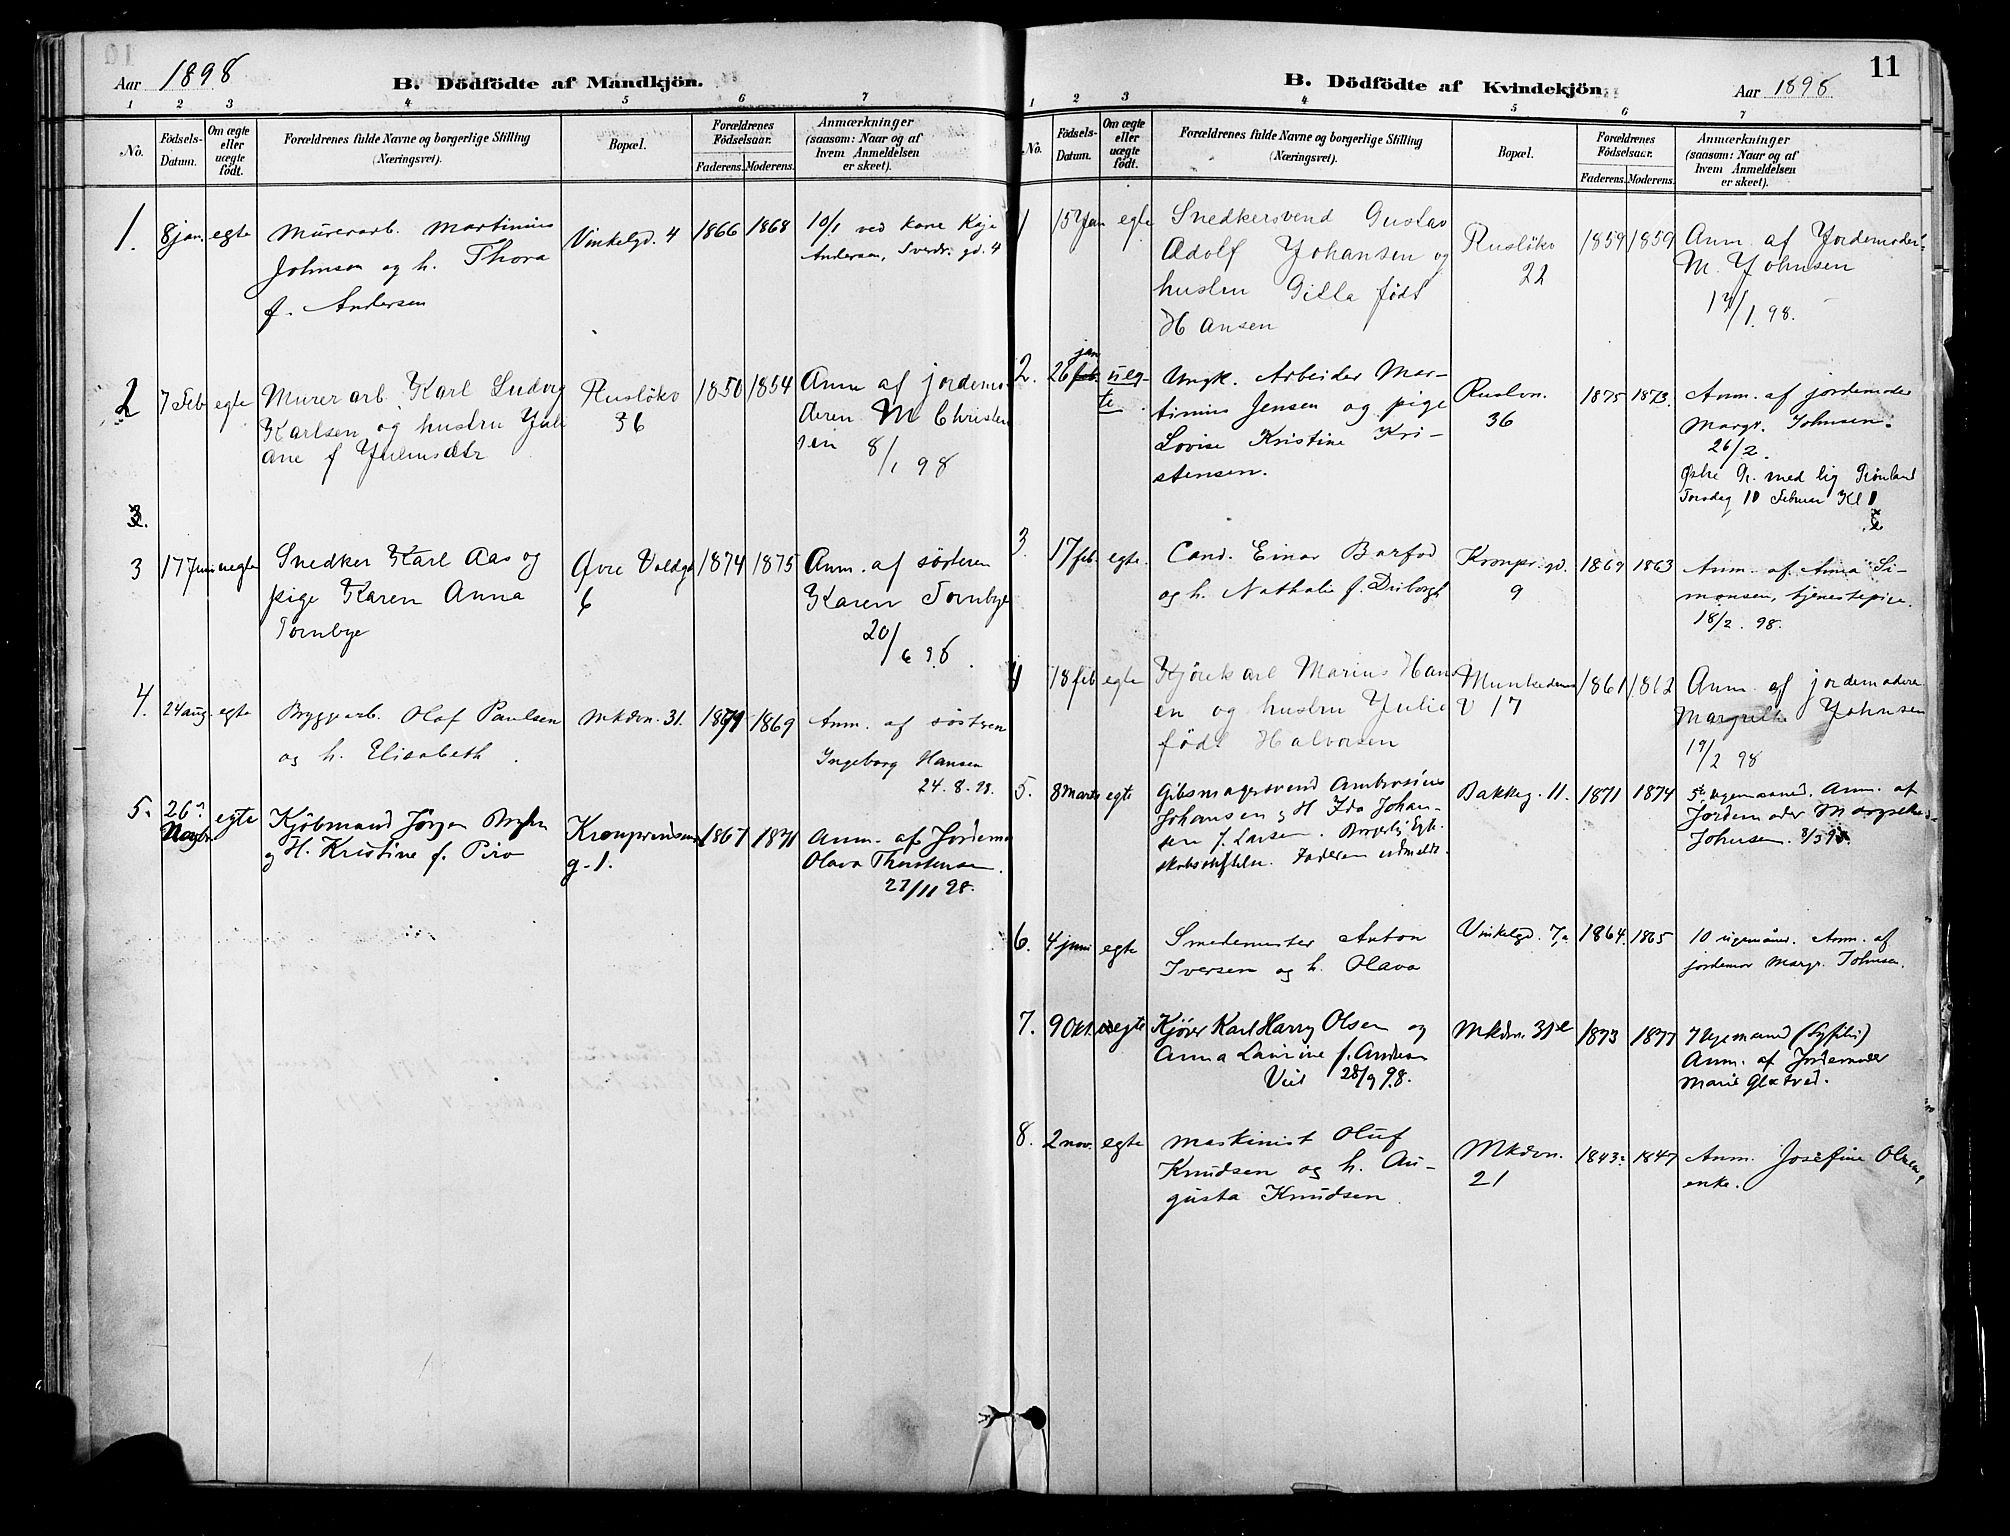 Aar 1898
B. Dödfödte af Mandkjön.
1 2 3 4 5 6 7
No.
Fødsels-Datum.
Om ægte eller uægte født.
Forældrenes fulde Navne og borgerlige Stilling
(Næringsvei).
Bopæl.
Forældrenes Fødselsaar.
Faderens. Moderens.
Anmærkninger
(saasom: Naar og af
hvem Anmeldelsen
er skeet).
1. 8 jan. egte Murerarb. Martinius Vinkelgd. 4 1866 1868 10/1 ved kone Kaja
Johnsen og h. Thora Andersen, Sverdr. gd. 4
f. Andersen
2 7 Feb egte Murerarb. Karl Ludvig Rusløkv 1850 1854 Anm af jordemo-
Karlsen og hustru Juli 36 deren M Christen
ane f sen
8/1 98
3.
3 17 Juni uegte Snedker Karl Aas og Øvre Voldgd 1874 1875 Anm. af søsteren
pige Karen Anna 6 Karen Tornbye
Tornbye 20/6 98.
4. 24 aug. egte Bryggarb. Olaf Paulsen Mkdvn. 31. 1871 1869 Anm. af søstren
og h. Elisabeth Ingeborg Hansen
24. 8. 98.
5. 26 egte Kjöbmand Jörgen Kronprindsens 1867 1871 Anm. af Jordemo
Novbr og H. Kristine f. Piro g. 1. Olava Thorstensen.
27/11 98.
11
B. Dödfödte af Kvindekjön.
Aar 1898
1 2 3 4 5 6 7
No.
Fødsels-Datum.
Om ægte eller uægte født.
Forældrenes fulde Navne og borgerlige Stilling
(Næringsvei).
Bopæl.
Forældrenes Fødselsaar.
Faderens. Moderens.
Anmærkninger
(saasom: Naar og af
hvem Anmeldelsen
er skeet).
1 15 Jan egte Snedkersvend Gustav Rusløkv 1859 1859 Anm. af Jordemoder
Adolf Johansen og 22 M. Johnsen
hustru Gilla født 17/1. 98.
Hansen
2. 26 jan feb. ueg- Ungk. Arbeider Mar- Ruslvn. 1875 1873. Anm. af jordemoder
te. tinius Jensen og pige 36 Margr. Johnsen.
Lovise Kristine Kri- 26/2.
stensen. Østre Gr. med lig Grønland
Torsdag 10 Februar Kl 1
3. 17 feb. egte. Cand. Einar Barfod Kronpr. gd. 1869 1863 Anm. af Anna Si-
og h. Nathalie f. 9 monsen, tjenestepige.
18/2. 98.
4 18 feb egte Kjörekarl Marius Hans Munkedams 1861 1862 Anm. af jordemoderen
en og hustru Julie V 17 Margrethe Johnsen
født Halvorsen 19/2 98
5. 8 Marts egte Gibsmagersvend Ambrosius Bakkeg. 11. 1871 1874 5te Ugemaaned. Anm. af
Johansen og H Ida Johan- Jordemoder Margrethe
sen f. Larsen. Borgerlig Egte- Johnsen. 8/3 98.
skabsstiftelse. Faderen udmeldt.
6. 4 juni egte Smedemester Anton Vinkelgd. 7,a 1864. 1865 10 Anm. af
Iversen og h. Olava jordemor Margr. Johnsen.
7. 9 Okt. uegte Kjører Karl Harry Olsen og Mkdvn. 31 1873 1877 7 (Syfilis)
Anna Laurine f. Andersen Anm. af Jordemoder
Viet 28/9 98. Marie
8. 2 nov. egte Maskinist Oluf Mkdvn. 1843. 1847 Anm. Josefine Olsen,
Knudsen og h. Au- 21 enke.
gusta Knudsen.